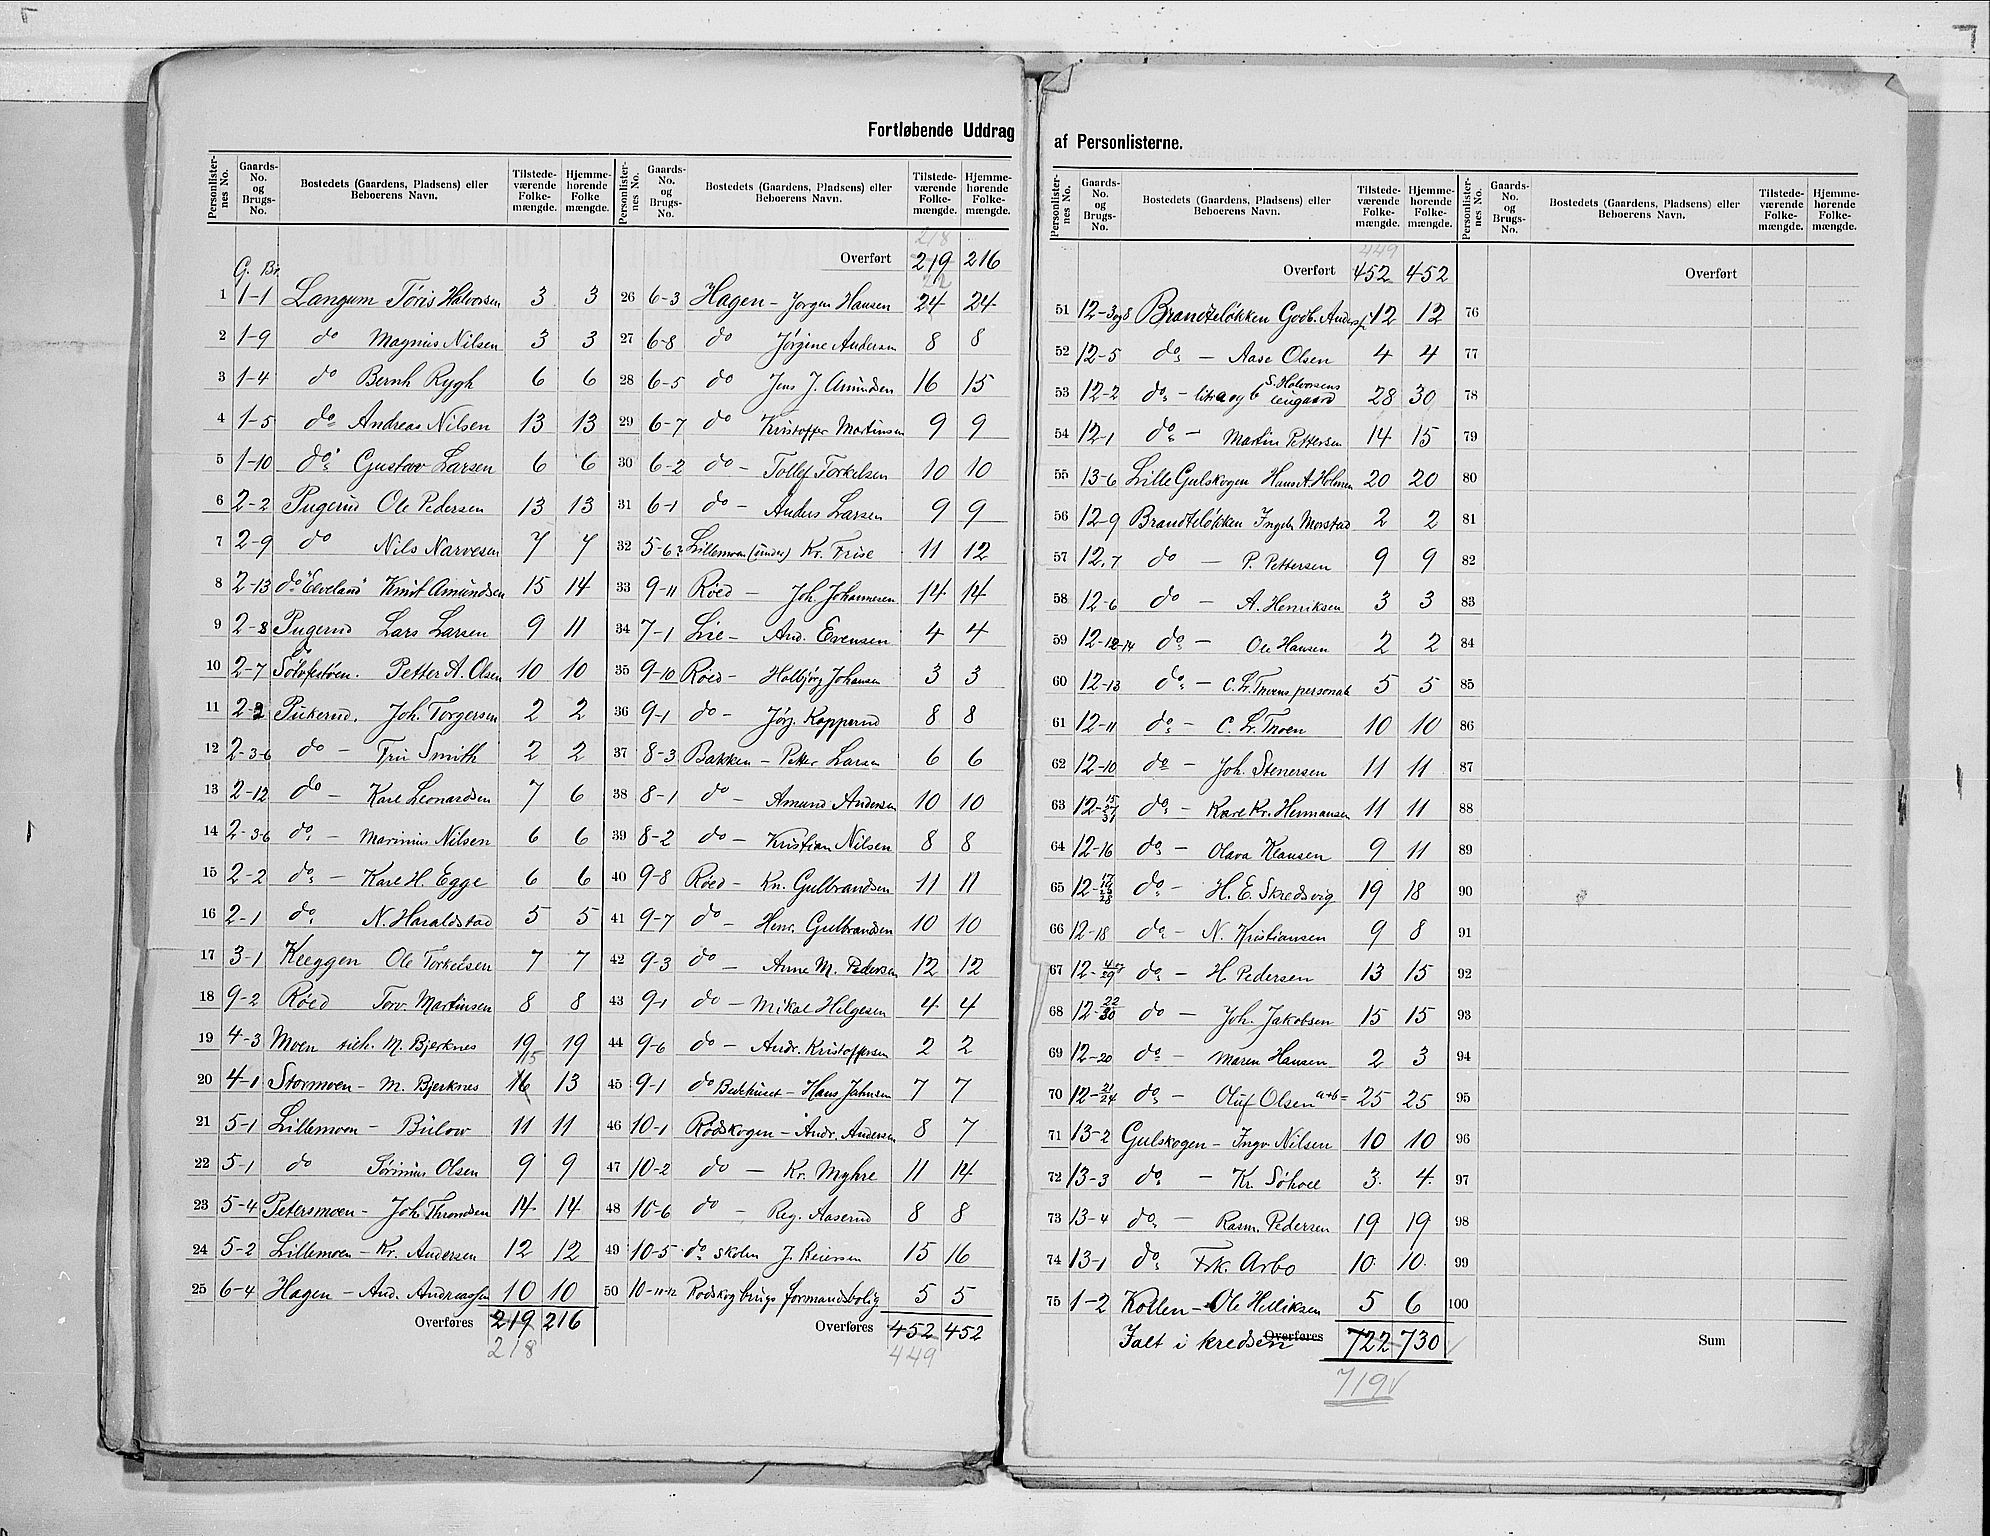 Fortløbende Uddrag
af Personlisterne.
Personlister-nes No. Gaards-No. og Brugs-No. Bostedets (Gaardens, Pladsens) eller Beboerens Navn. Tilstede-værende Folke-mængde. Hjemme-hørende Folke mængde.
G. Br.
1 1-1 Langum Tøris Halvorsen 3 3
2 1-9 do Magnus Nilsen 3 3
3 1-4 do Bernh Rygh 6 6
4 1-5 do Andreas Nilsen 13 13
5 1-10 do Gustav Larsen 6 6
6 2-2 Pugerud Ole Pedersen 13 13
7 2-9 do Nils Narvesen 7 7
8 2-13 do "Elveland" Knut Amundsen 15 14
9 2-8 Pugerud Lars Larsen 9 11
10 2-7 do Sølvfestøen. Petter A. Olsen 10 10
11 2-2 Pukerud. Joh. Torgersen 2 2
12 2-3-6 do – Fru Smith 2 2
13 2-12 do – Karl Leonardsen 7 6
14 2-3-6 do – Marinius Nilsen 6 6
15 2-2 do – Karl H. Egge 6 6
16 2-1 do N. Haraldstad 5 5
17 3-1 Kleggen Ole Torkelsen 7 7
18 9-2 Røed Torv. Martinsen 8 8
19 4-3 Moen M. Bjerknes 19 19
20 4-1 Stormoen – M. Bjerknes 16 15 13
21 5-1 Lillemoen – Bülow 11 11
22 5-1 do Sørinus Olsen 9 9
23 5-4 Petersmoen – Joh. Throndsen 14 14
24 5-2 Lillemoen – Kr. Andersen 12 12
25 6-4 Hagen – And. Andreassen 10 10
Overføres 219 216
218
Personlister-nes No. Gaards-No. og Brugs-No. Bostedets (Gaardens, Pladsens) eller Beboerens Navn. Tilstede-værende Folke-mængde. Hjemme-hørende Folke-mængde.
218
Overført 219 216
22
26 6-3 Hagen – Jørgen Hansen 24 24
27 6-8 do Jørgine Andersen 8 8
28 6-5 do Jens J. Amundsen 16 15
29 6-7 do Kristoffer Martinsen 9 9
30 6-2 do – Tollef Torkelsen 10 10
31 6-1 do – Anders Larsen 9 9
32 5-6? Lillemoen (under) Kr. Frise 11 12
33 9-11 Røed – Joh. Johannesen 14 14
34 7-1 Lie – And. Evensen 4 4
35 9-10 Røed – Halbjørg Johansen 3 3
36 9-1 do – Jørg. Kopperud 8 8
37 8-3 Bakken – Petter Larsen 6 6
38 8-1 do – Amund Andersen 10 10
39 8-2 do – Kristian Nilsen 8 8
40 9-8 Røed – Kn. Gulbrandsen 11 11
41 9-7 do – Henr. Gulbrandsen 10 10
42 9-3 do – Anne M. Pedersen 12 12
43 9-1 do – Mikal Helgesen 4 4
44 9-6 do – Andr. Kristoffersen 2 2
45 9-1 do Bedehuset – Hans Johnsen 7 7
46 10-1 Rødskogen – Andr. Andersen 8 7
47 10-2 do – Kr. Myhre 11 14
48 10-6 do – Reg. Aaserud 8 8
49 10-5 do skolen J. Reiersen 15 16
50 10-11-12 Rødskog brugs formandsbolig 5 5
Overføres 452 452
449
Personlister-nes No. Gaards-No. og Brugs-No. Bostedets (Gaardens, Pladsens) eller Beboerens Navn. Tilstede-værende Folke-mængde. Hjemme-hørende Folke-mængde.
449
Overført 452 452
51 12-3og8 Brandteløkken Godb. Anders 12 12
52 12-5 do – Aase Olsen 4 4
53 12-2 do – litr a og b S. Halvorsens leiegaard 28 30
54 12-1 do – Martin Pettersen 14 15
55 13-6 Lille Gulskogen Hans A. Holmen 20 20
56 12-9 Brandteløkken Ingeb. Morstad 2 2
57 12.7 do – P. Pettersen 9 9
58 12-6 do – A. Henriksen 3 3
59 12-12-14 do – Ole Hansen 2 2
60 12-13 do – C. Lr. Thoens personale 5 5
61 12-11 do – C. Lr. Thoen 10 10
62 12-10 do – Joh. Stenersen 11 11
63 12-15 27 31 do – Karl Kr. Hermansen 11 11
64 12-16 do – Olava Klausen 9 11
65 12-17 19 23 28 do – H. E. Skredsvig 19 18
66 12-18 do – N. Kristiansen 9 8
67 12-4 og 29 do – H. Pedersen 13 15
68 12-22 30 do – Joh. Jakobsen 15 15
69 12-20 do – Maren Hansen 2 3
70 12-21 24 do – Oluf Olsen a+b= 25 25
71 13-2 Gulskogen – Ingv. Nilsen 10 10
72 13-3 do – Kr. Søhoel 3. 4.
73 13-4 do – Rasm. Pedersen 19 19
74 13-1 do Frk. Arbo 10. 10.
75 1-2 Kollen – Ole Helliksen 5 6
Overføres
Ialt i kredsen 722 730
719 √
Personlister-nes No. Gaards-No. og Brugs-No. Bostedets (Gaardens, Pladsens) eller Beboerens Navn. Tilstede-værende Folke-mængde. Hjemme-hørende Folke-mængde.
Overført
76
77
78
79
80
81
82
83
84
85
86
87
88
89
90
91
92
93
94
95
96
97
98
99
100
Sum